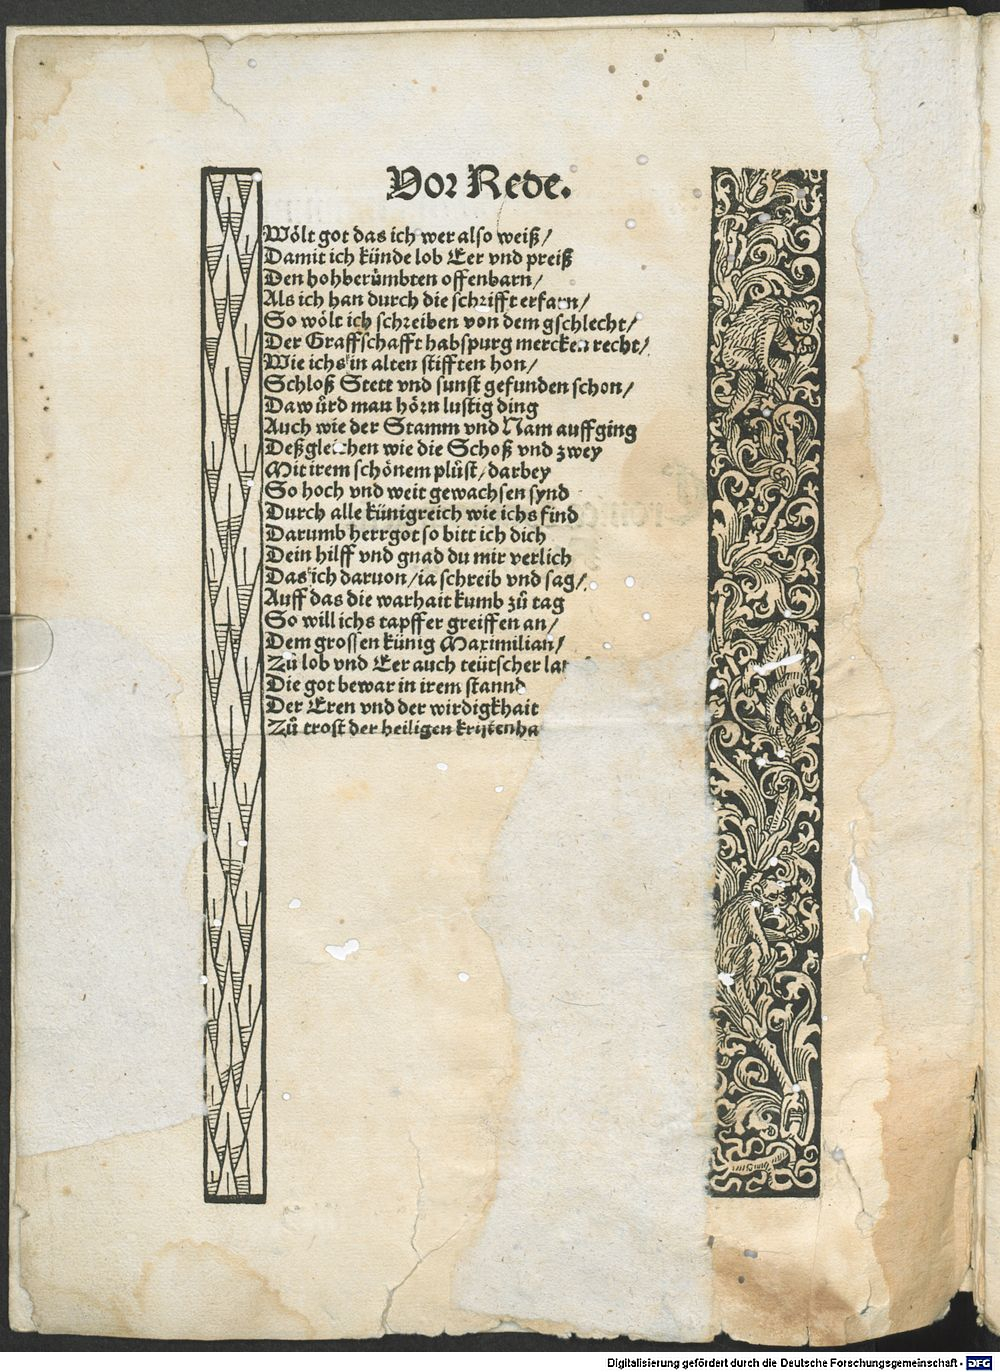 Vor Rede.
Wölt got das ich wer also weiß/
Damit ich künde lob Eer vnd preiß
Den hohberůmbten offenbarn/
Als ich han durch die schrifft erfarn/
So wölt ich schreiben von dem gschlecht/
Der Graffschafft habspurg mercken recht/
Wie ichs in alten stifften hon/
Schloß Stett vnd sunst gefunden schon/
Da wůrd man hörn lustig ding
Auch wie der Stamm vnd Nam auffging
Deßgleichen wie die Schoß vnd zwey
Mit irem schönem plůst/darbey
So hoch vnd weit gewachsen synd
Durch alle künigreich wie ichs find
Darumb herrgot so bitt ich dich
Dein hilff vnd gnad du mir verlich
Das ich daruon/ia schreib vnd sag/
Auff das die warhait kumb zů tag
So will ichs tapffer greiffen an/
Dem grossen künig Maximilian/
Zů lob vnd Eer auch teütscher lan
Die got bewar in irem stannd
Der Eren vnd der wirdigkhait
Zů trost der heiligen kristenha
Digitalisierung gefördert durch die Deutsche Forschungsgemeinschaft - DFG